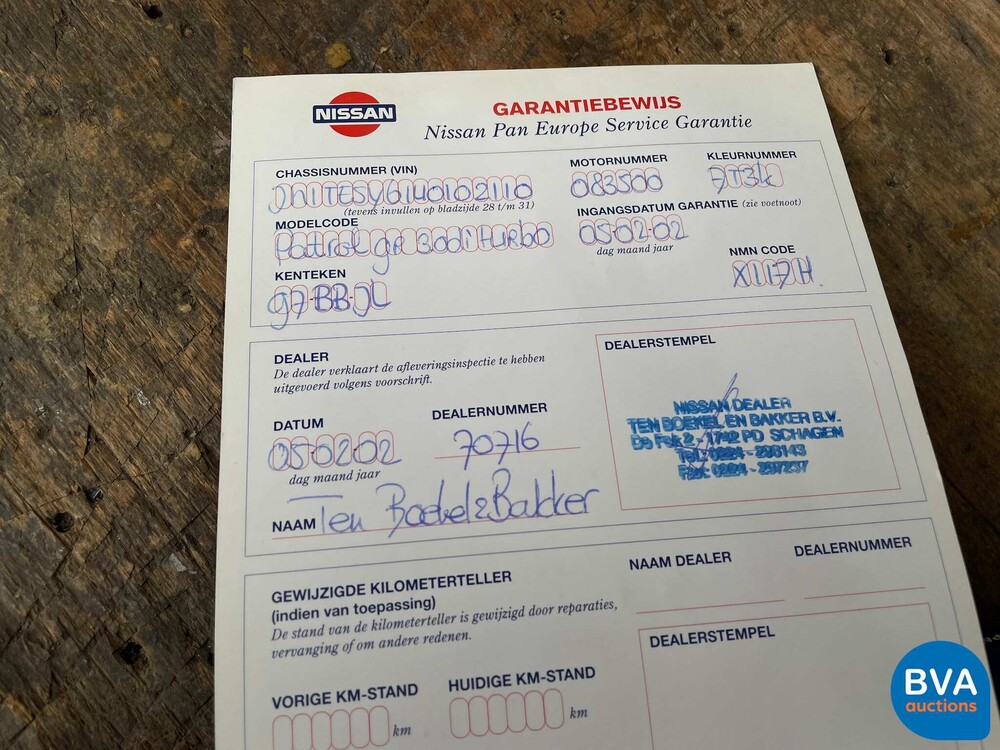 NISSAN
GARANTIEBEWIJS
Nissan Pan Europe Service Garantie
CHASSISNUMMER (VIN)
MOTORNUMMER
KLEURNUMMER
JN1TESY61U0102110
083500
(tevens invullen op bladzijde 28 t/m 31)
MODELCODE
INGANGSDATUM GARANTIE (zie voetnoot)
Patrol gr 3.0di turbo
05-02-02
dag maand jaar
KENTEKEN
NMN CODE
97-BB-JL
X117H
DEALER
De dealer verklaart de afleveringsinspectie te hebben
uitgevoerd volgens voorschrift.
DEALERSTEMPEL
DATUM
DEALERNUMMER
05-02-02
70716
dag maand jaar
NAAM Ten Boekel & Bakker
NISSAN DEALER
TEN BOEKEL EN BAKKER B.V.
De Fok 2 - 1742 PD SCHAGEN
GEWIJZIGDE KILOMETERTELLER
(indien van toepassing)
De stand van de kilometerteller is gewijzigd door reparaties,
vervanging of om andere redenen.
NAAM DEALER
DEALERNUMMER
DEALERSTEMPEL
VORIGE KM-STAND
HUIDIGE KM-STAND
km
km
BVA
auctions